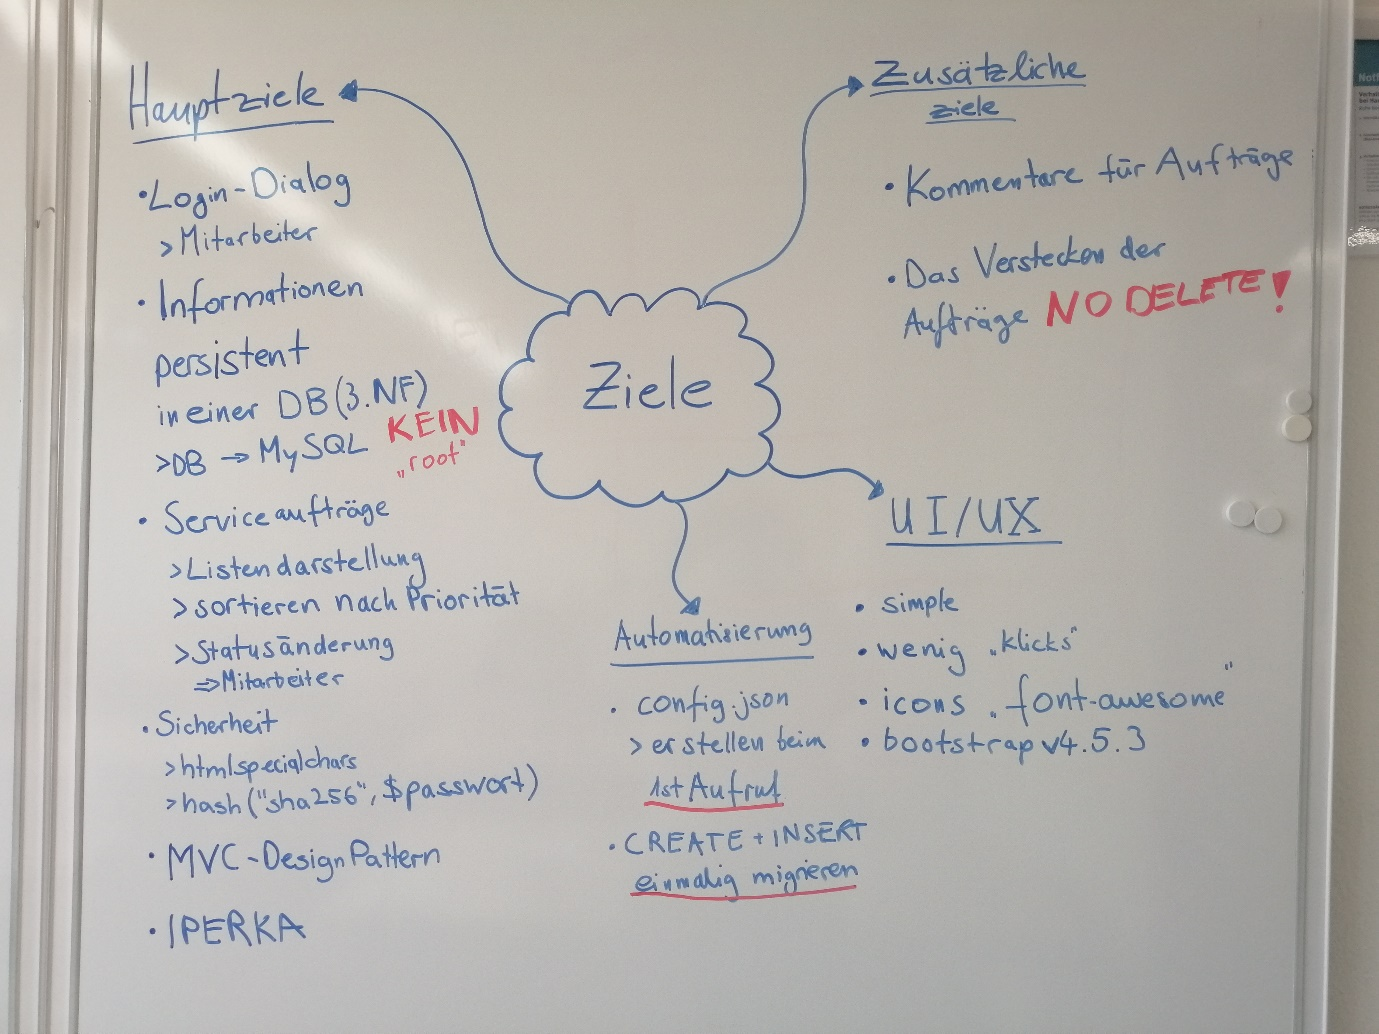 Hauptziele
• Login-Dialog
> Mitarbeiter
• Informationen
persistent
in einer DB (3.NF)
> DB → MySQL KEIN
„root"
• Serviceaufträge
> Listendarstellung
> sortieren nach Priorität
> Statusänderung
⇒ Mitarbeiter
• Sicherheit
> htmlspecialchars
> hash("sha256", $passwort)
• MVC-Design Pattern
• IPERKA
Ziele
Zusätzliche
ziele
• Kommentare für Aufträge
• Das Verstecken der
Aufträge NO DELETE!
Automatisierung
• config.json
> erstellen beim
1st Aufruf
• CREATE + INSERT
einmalig migrieren
UI/UX
• simple
• wenig „klicks"
• icons „font-awesome"
• bootstrap v4.5.3